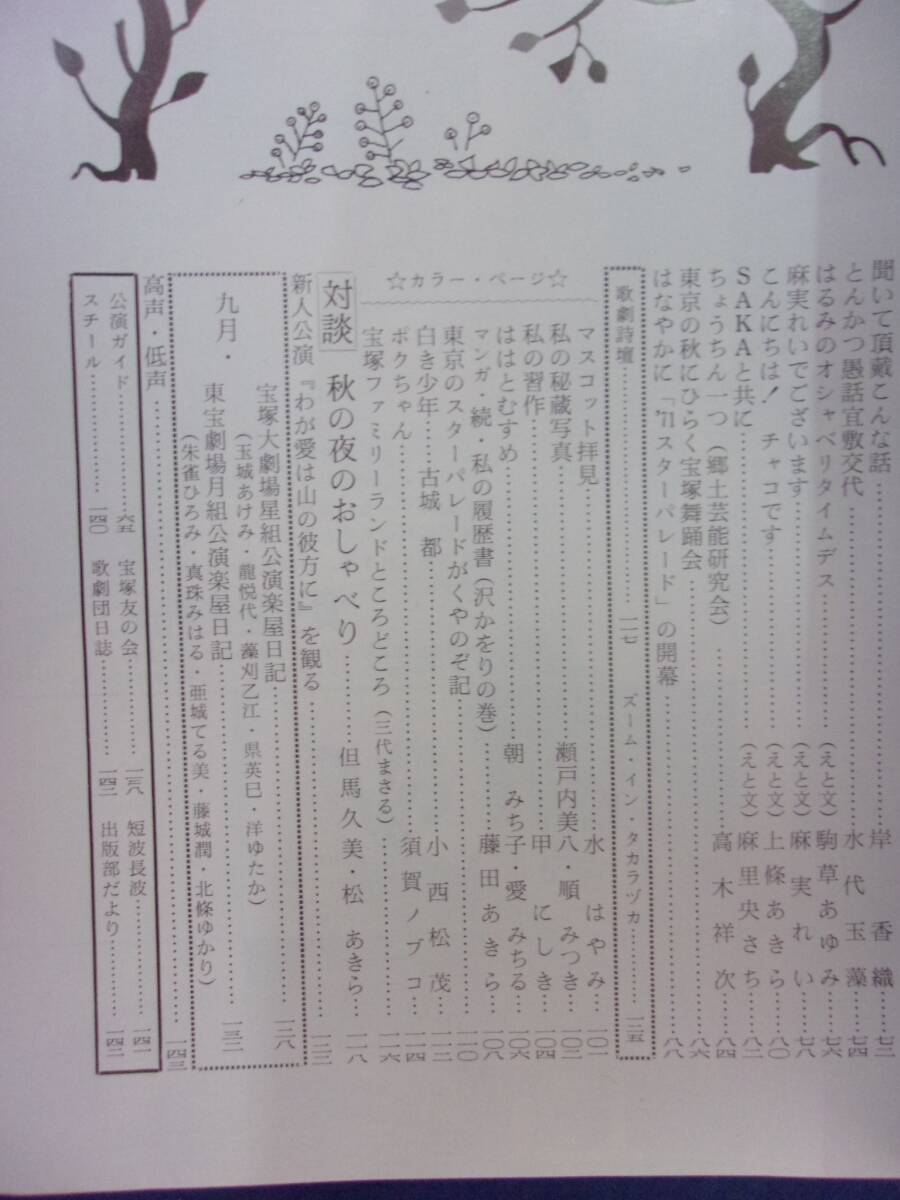 聞いて頂戴こんな話……岸香織…七三
とんかつ愚話宜敷交代……水代玉藻…七四
はるみのオシャベリタイムデス……(えと文)駒草あゆみ…七六
麻実れいでございます……(えと文)麻実れい…七八
こんにちは！チャコです……(えと文)上條あきら…八〇
SAKAと共に……(えと文)麻里央さち…八二
ちょうちん一つ(郷土芸能研究会)……高木祥次…八四
東京の秋にひらく宝塚舞踊会……八六
はなやかに「'71スターパレード」の開幕……八八
歌劇詩壇……一一七
ズーム・イン・タカラヅカ……一三五
マスコット拝見……水はやみ…一〇一
私の秘蔵写真……瀬戸内美八・順みつき…一〇二
私の習作……甲にしき…一〇四
ははとむすめ……朝みち子・愛みちる…一〇六
マンガ・続・私の履歴書(沢かをりの巻)……藤田あきら…一〇八
東京のスターパレードがくやのぞ記……一一〇
白き少年……古城都……小西松茂…一一二
ボクちゃん……須賀ノブコ…一一四
宝塚ファミリーランドところどころ(三代まさる)……一一六
☆カラー・ページ☆
対談 秋の夜のおしゃべり……但馬久美・松あきら…一一八
新人公演『わが愛は山の彼方に』を観る……一二三
九月・
宝塚大劇場星組公演楽屋日記……一二八
(玉城あけみ・龍悦代・藻刈乙江・県英巳・洋ゆたか)
東宝劇場月組公演楽屋日記……一三二
(朱雀ひろみ・真珠みはる・亜城てる美・藤城潤・北條ゆかり)
高声・低声……一四三
公演ガイド……六五
宝塚友の会……一三八
短波長波……一四一
スチール……一四〇
歌劇団日誌……一四二
出版部だより……一四二